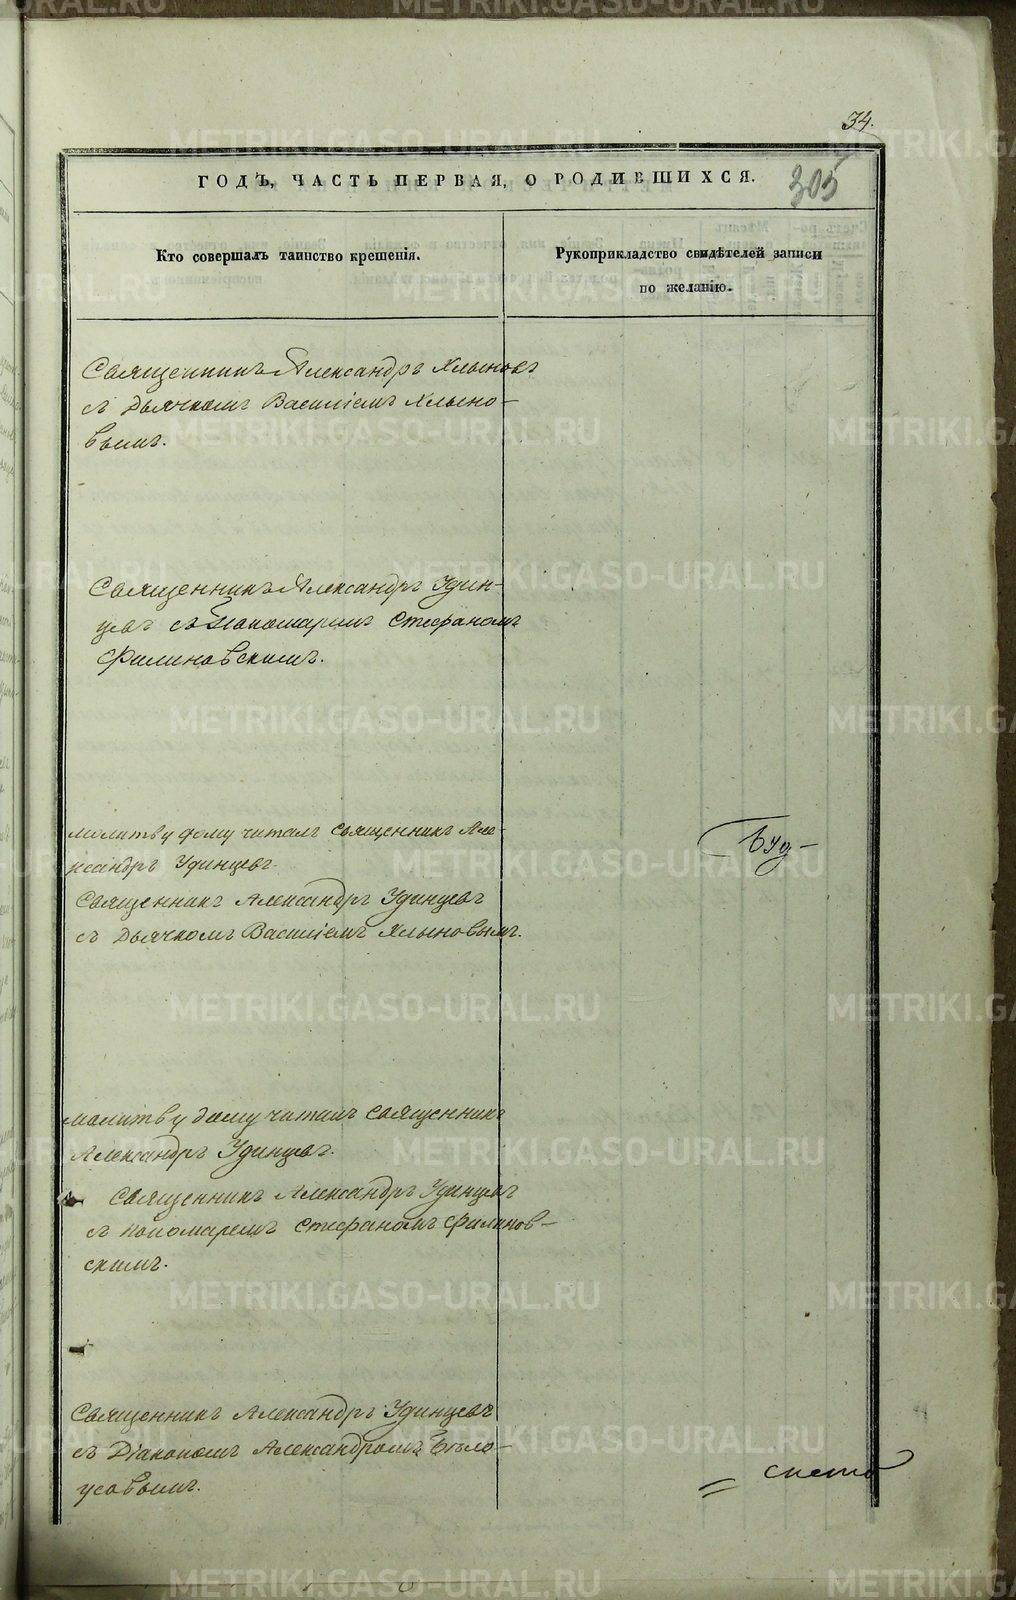 34.
305
ГОДЪ, ЧАСТЬ ПЕРВАЯ, О РОДИВШИХСЯ.
Кто совершалъ таинство крещенія.
Рукоприкладство свидѣтелей записи
по желанію.
Священникъ Александръ Хлыновъ
съ Дьячкомъ Василіемъ Хлыно-
вымъ.
Священникъ Александръ Удин-
цевъ съ Пономаремъ Стефаномъ
Филиновскимъ.
молитву дому читалъ священникъ Але-
ксандръ Удинцевъ.
Священникъ Александръ Удинцевъ
съ Дьячкомъ Василіемъ Хлыновымъ.
молитву дому читалъ священникъ
Александръ Удинцевъ.
Священникъ Александръ Удинцевъ
съ пономаремъ Стефаномъ Филинов-
скимъ.
Священникъ Александръ Удинцевъ
съ Діакономъ Александромъ Бѣло-
усовымъ.
METRIKI.GASO-URAL.RU